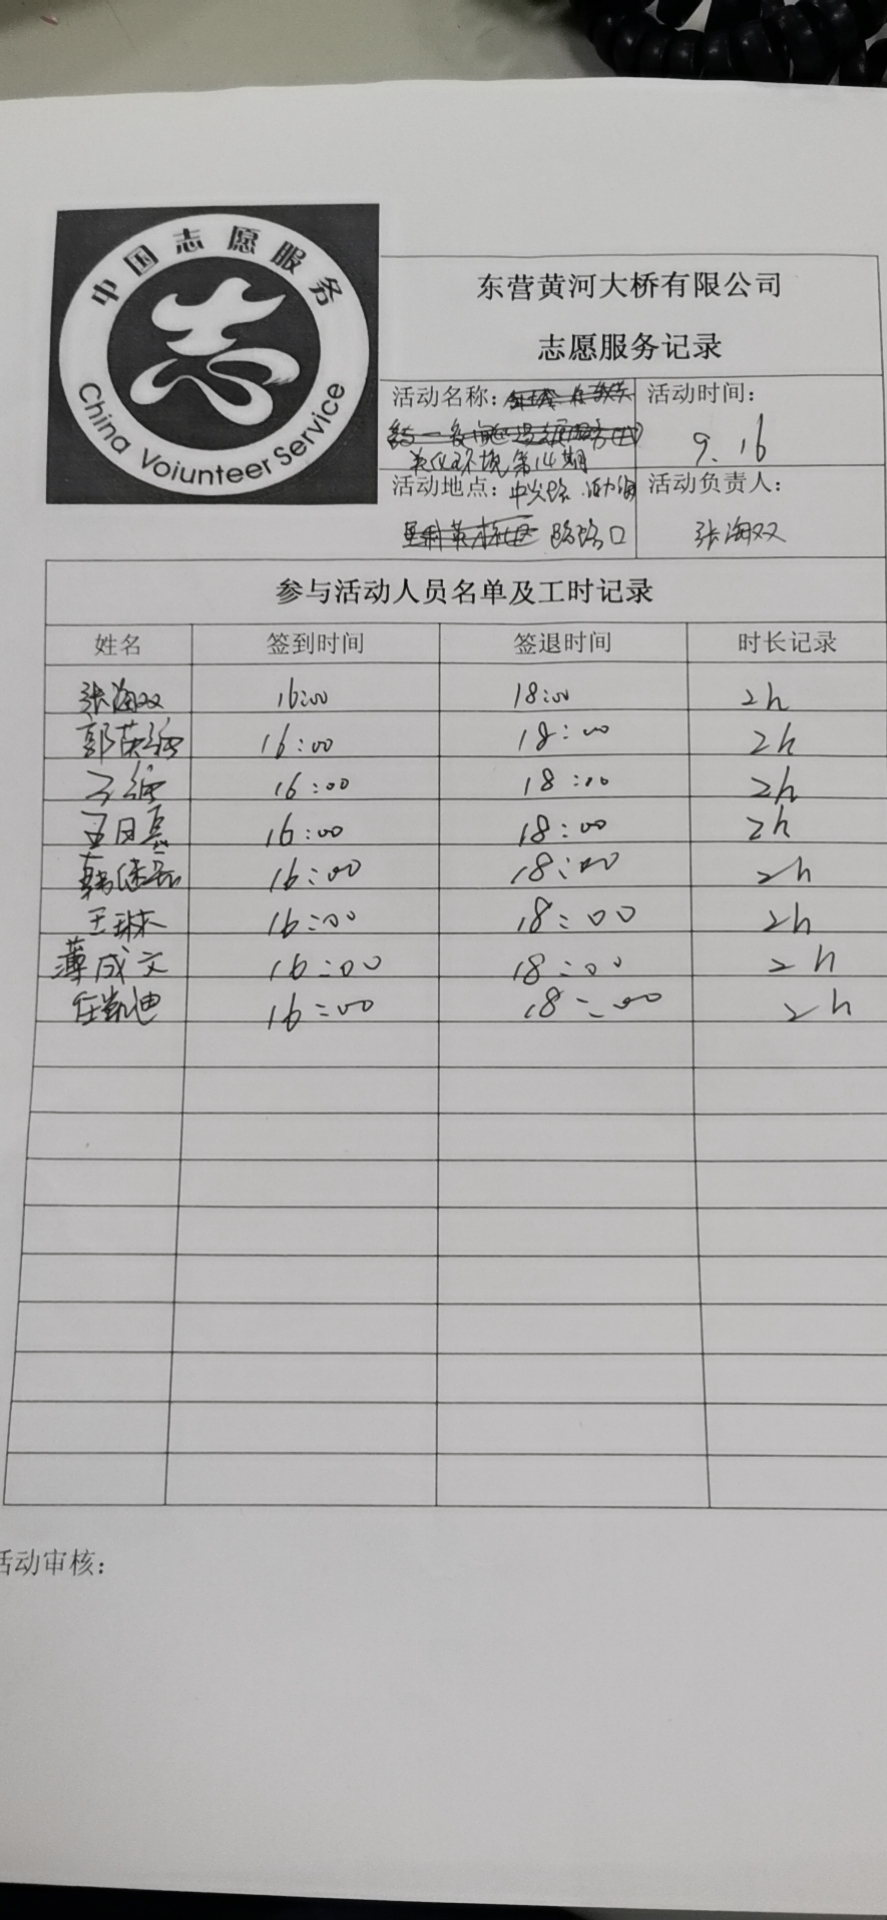 中国志愿服务
China Voiunteer Service
东营黄河大桥有限公司
志愿服务记录
活动名称：
美化环境第14期
活动时间：
9.16
活动地点：中兴路
路路口
活动负责人：
张海双
参与活动人员名单及工时记录
姓名 签到时间 签退时间 时长记录
张海双 16:00 18:00 2h
郭英 16:00 18:00 2h
16:00 18:00 2h
16:00 18:00 2h
韩 16:00 18:00 2h
王琳 16:00 18:00 2h
薄成文 16:00 18:00 2h
任凯迪 16:00 18:00 2h
活动审核：